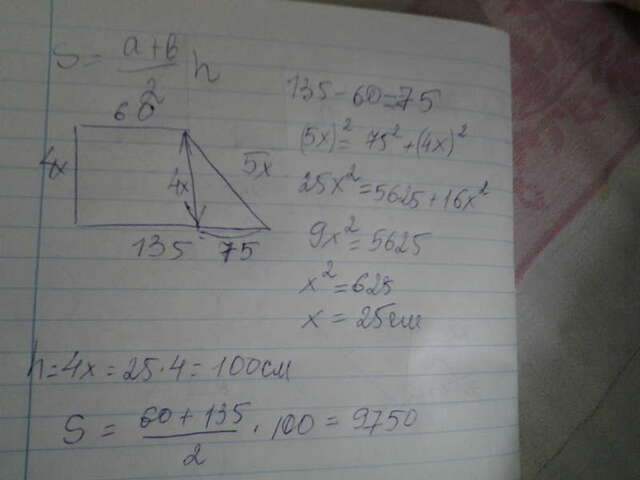 S = (a+b)/2 h
60
4x
4x
5x
135 75
135 - 60 = 75
(5x)² = 75² + (4x)²
25x² = 5625 + 16x²
9x² = 5625
x² = 625
x = 25см
h = 4x = 25·4 = 100см
S = (60 + 135)/2 · 100 = 9750